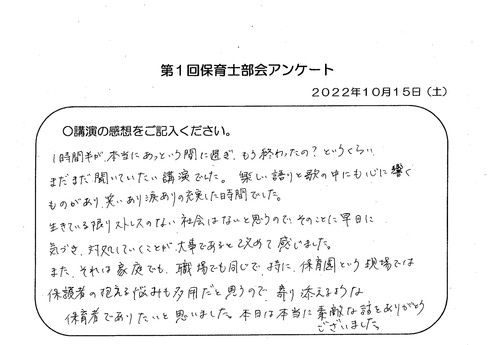 第1回保育士部会アンケート
2022年10月15日（土）
〇講演の感想をご記入ください。
1時間半が、本当にあっという間に過ぎ、もう終わったの？というくらい
まだまだ聞いていたい講演でした。楽しい語りと歌の中にも心に響く
ものがあり、笑いあり涙ありの充実した時間でした。
生きている限りストレスのない社会はないと思うので、そのことに早目に
気づき、対処していくことが、大事であると改めて感じました。
また、それは家庭でも、職場でも同じで、特に、保育園という現場では
保護者の抱える悩みも多用だと思うので、寄り添えるような
保育者でありたいと思いました。本日は本当に素敵な話をありがとう
ございました。